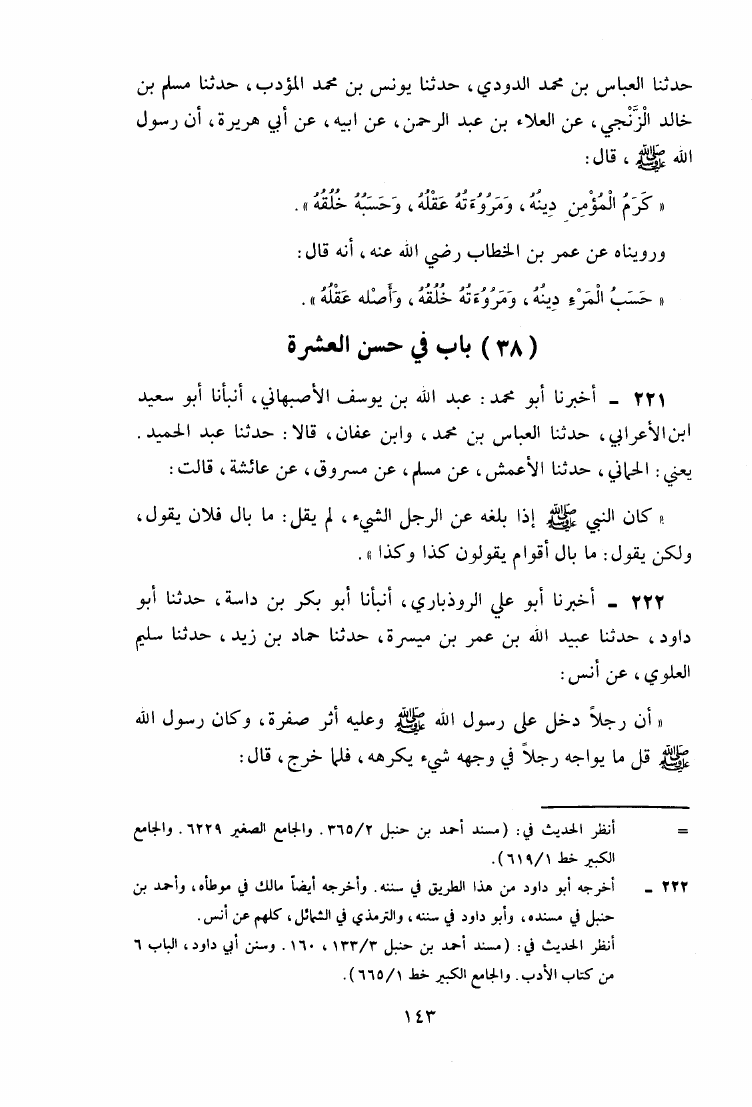 حدثنا العباس بن محمد الدودي، حدثنا يونس بن محمد المؤدب، حدثنا مسلم بن
خالد الْزَّنْجي، عن العلاء بن عبد الرحمن، عن ابيه، عن أبي هريرة، أن رسول
الله ﷺ، قال:
« كَرَمُ الْمُؤْمِنِ دِينُهُ، وَمَرُوُءَتُهُ عَقْلُهُ، وَحَسَبُهُ خُلُقُهُ ».
ورويناه عن عمر بن الخطاب رضي الله عنه، أنه قال:
« حَسَبُ الْمَرْءِ دِينُهُ، وَمَرُوُءَتُهُ خُلُقُهُ، وَأَصْله عَقْلُهُ ».
(٣٨) باب في حسن العشرة
٢٢١ ـ أخبرنا أبو محمد: عبد الله بن يوسف الأصبهاني، أنبأنا أبو سعيد
ابن الأعرابي، حدثنا العباس بن محمد، وابن عفان، قالا: حدثنا عبد الحميد.
يعني: الحماني، حدثنا الأعمش، عن مسلم، عن مسروق، عن عائشة، قالت:
« كان النبي ﷺ إذا بلغه عن الرجل الشيء، لم يقل: ما بال فلان يقول،
ولكن يقول: ما بال أقوام يقولون كذا وكذا ».
٢٢٢ ـ أخبرنا أبو علي الروذباري، أنبأنا أبو بكر بن داسة، حدثنا أبو
داود، حدثنا عبيد الله بن عمر بن ميسرة، حدثنا حماد بن زيد، حدثنا سليم
العلوي، عن أنس:
« أن رجلاً دخل على رسول الله ﷺ وعليه أثر صفرة، وكان رسول الله
ﷺ قل ما يواجه رجلاً في وجهه شيء يكرهه، فلما خرج، قال:
= أنظر الحديث في: (مسند أحمد بن حنبل ٣٦٥/٢. والجامع الصغير ٦٢٢٩. والجامع
الكبير خط ٦١٩/١).
٢٢٢ ـ أخرجه أبو داود من هذا الطريق في سننه. وأخرجه أيضاً مالك في موطأه، وأحمد بن
حنبل في مسنده، وأبو داود في سننه، والترمذي في الشمائل، كلهم عن أنس.
أنظر الحديث في: (مسند أحمد بن حنبل ١٣٣/٣، ١٦٠. وسنن أبي داود، الباب ٦
من كتاب الأدب. والجامع الكبير خط ٦٦٥/١).
١٤٣